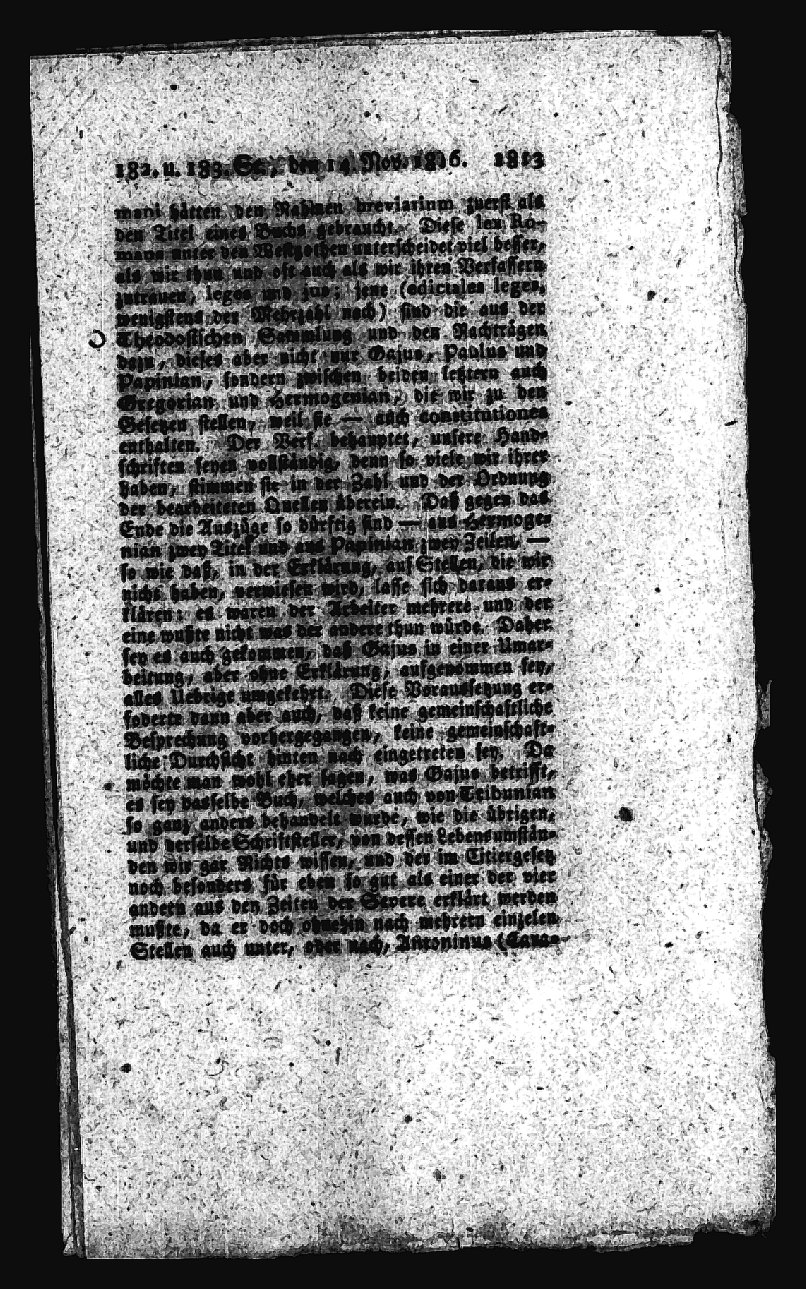 182. u. 183. St., den 14. Nov. 1816. 1813
mani hätten den Nahmen breviarium zuerst als
den Titel eines Buchs gebraucht. Diese lex Ro-
mana unter den Westgothen unterscheidet viel besser,
als wir thun und oft auch als wir ihren Verfassern
zutrauen, leges und jus; jene (edictales leges,
wenigstens der Mehrzahl nach) sind die aus der
Theodosischen Sammlung und den Nachträgen
dazu, dieses aber nicht nur Gajus, Paulus und
Papinian, sondern zwischen beiden letztern auch
Gregorian und Hermogenian, die wir zu den
Gesetzen stellen, weil sie — auch constitutiones
enthalten. Der Verf. behauptet, unsere Hand-
schriften seyen vollständig, denn so viele wir ihrer
haben, stimmen sie in der Zahl und der Ordnung
der bearbeiteten Quellen überein. Daß gegen das
Ende die Auszüge so dürftig sind — aus Hermoge-
nian zwey Titel und aus Papinian zwey Zeilen, —
so wie daß, in der Erklärung, auf Stellen, die wir
nicht haben, verwiesen wird, lasse sich daraus er-
klären: es waren der Arbeiter mehrere und der
eine wußte nicht was der andere thun würde. Daher
sey es auch gekommen, daß Gajus in einer Umar-
beitung, aber ohne Erklärung, aufgenommen sey,
alles Uebrige umgekehrt. Diese Voraussetzung er-
foderte dann aber auch, daß keine gemeinschaftliche
Besprechung vorhergegangen, keine gemeinschaft-
liche Durchsicht hinten nach eingetreten sey. Da
möchte man wohl eher sagen, was Gajus betrifft,
es sey dasselbe Buch, welches auch von Tribunian
so ganz anders behandelt wurde, wie die übrigen,
und derselbe Schriftsteller, von dessen Lebensumstän-
den wir gar Nichts wissen, und der im Citiergesetz
noch besonders für eben so gut als einer der vier
andern aus den Zeiten der Severe erklärt werden
mußte, da er doch ohnehin nach mehrern einzelen
Stellen auch unter, oder nach, Antoninus (Cara-